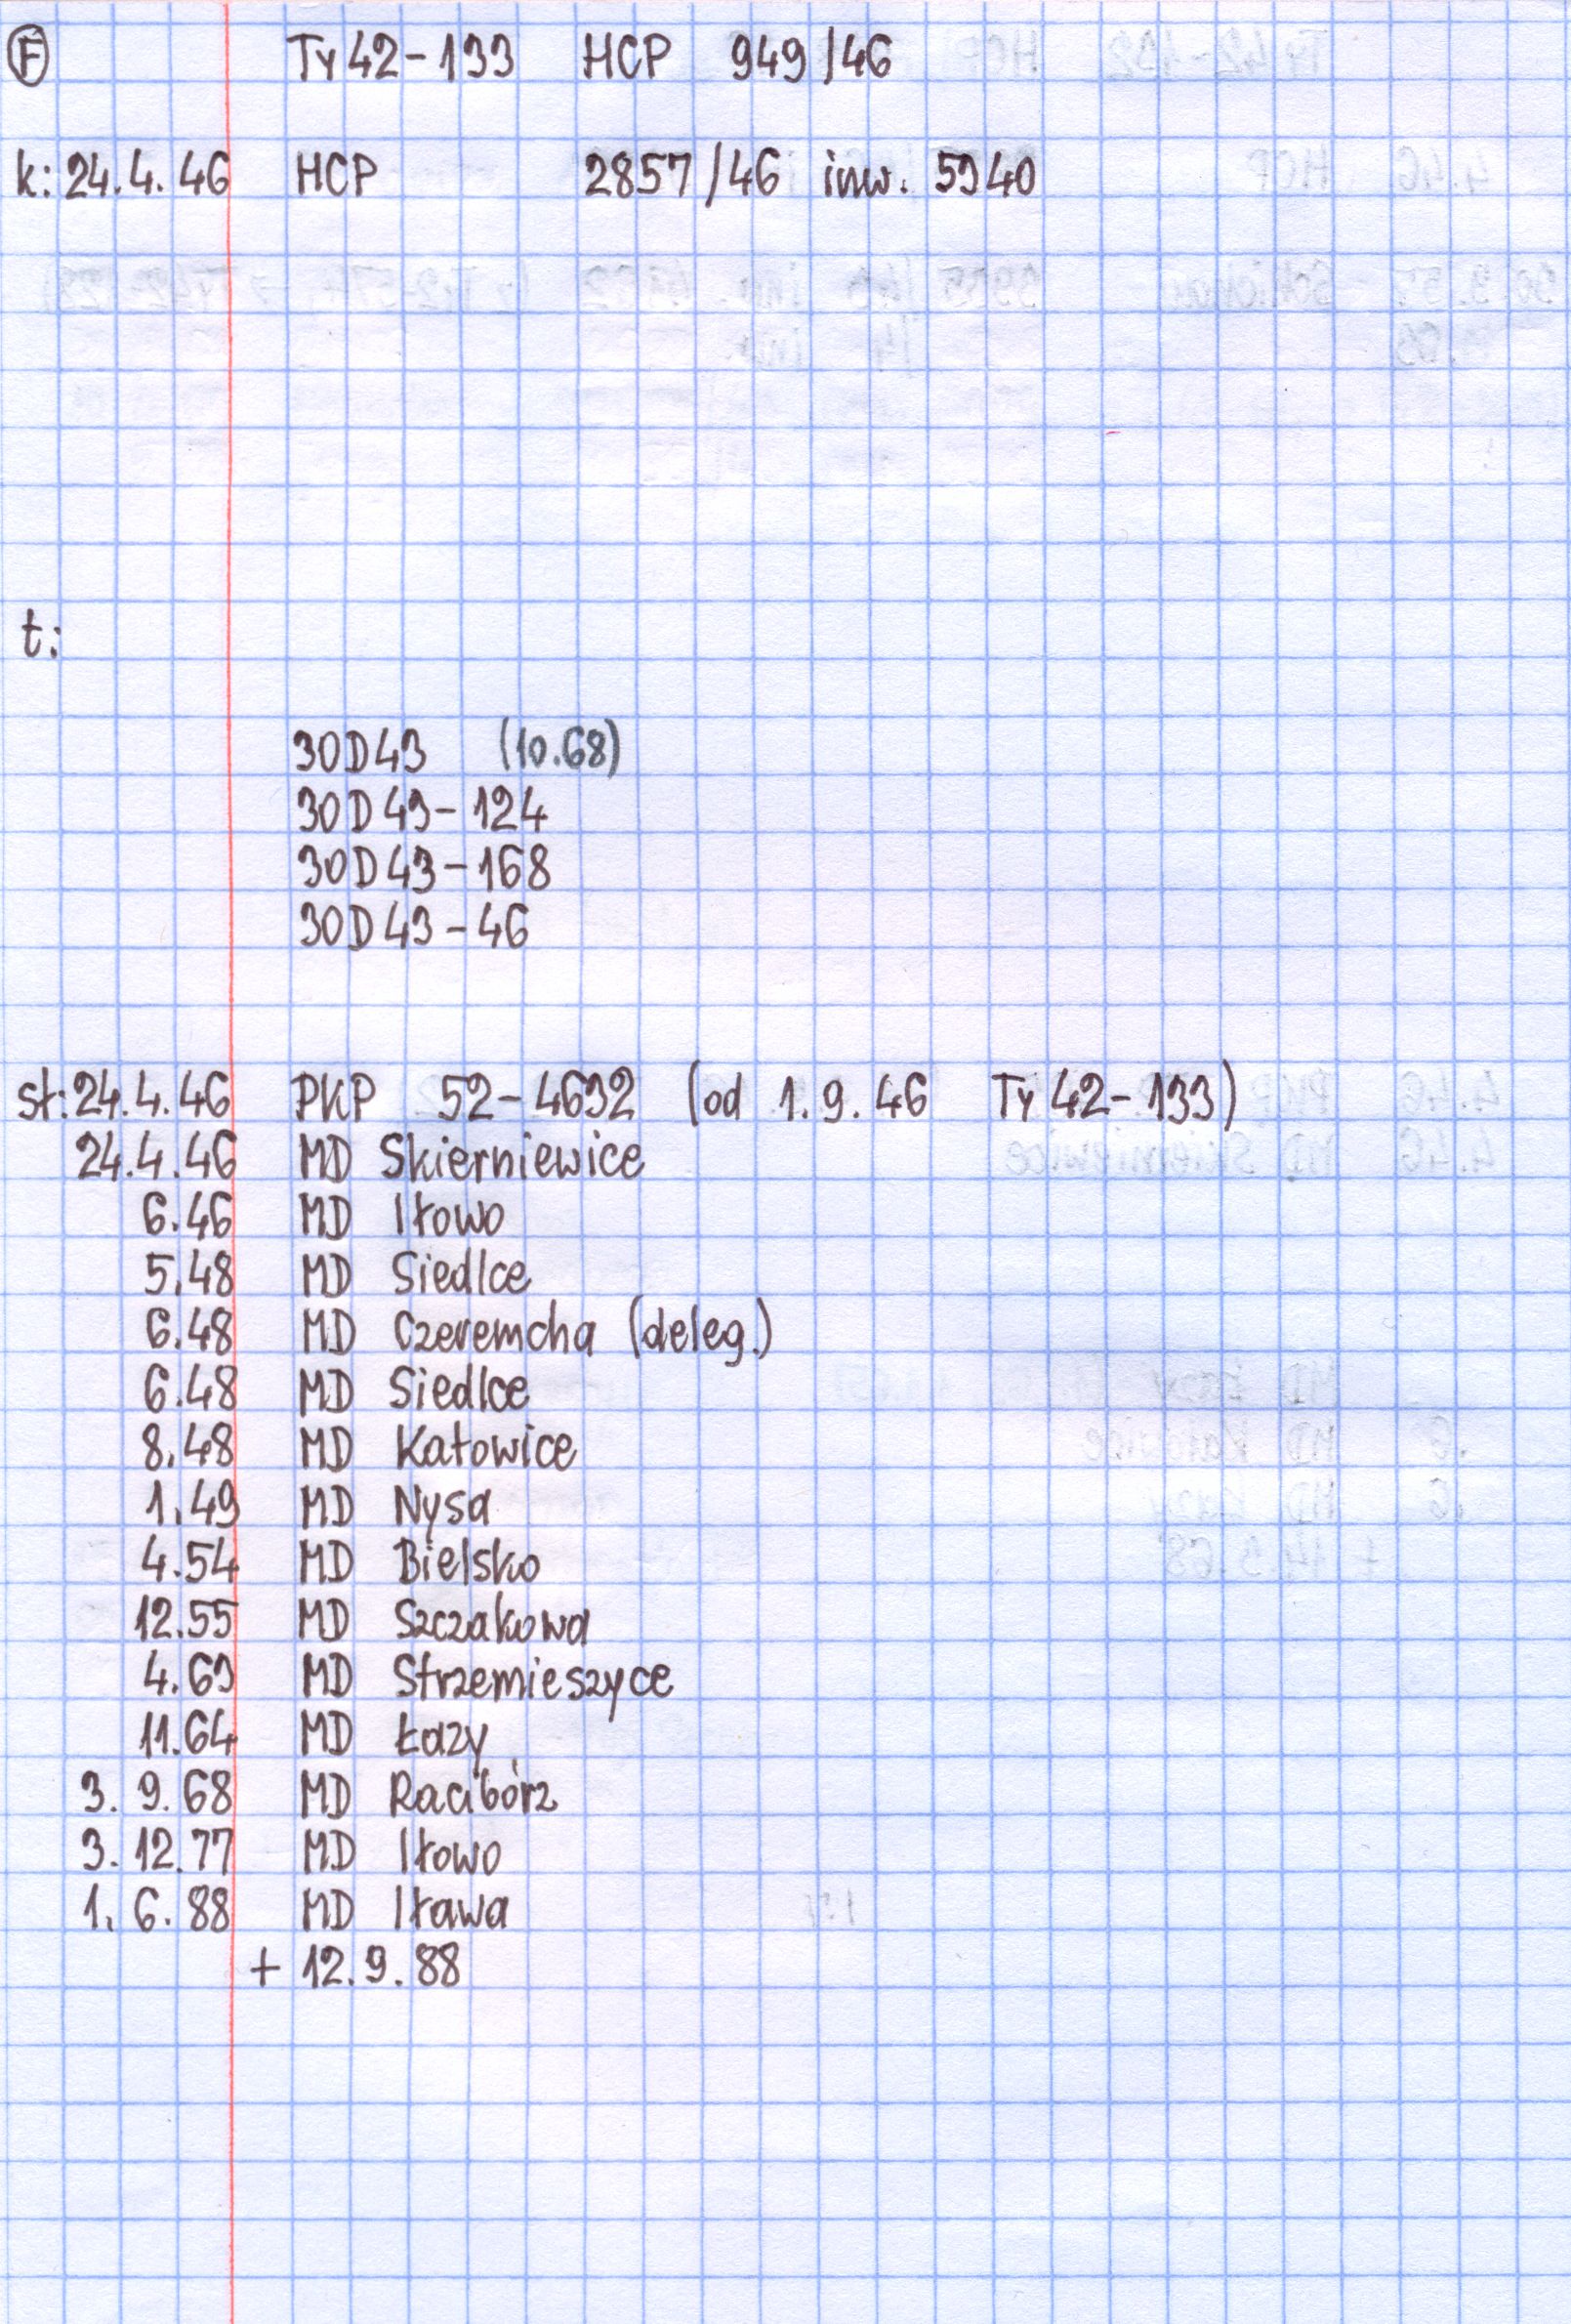 F Ty42-133 HCP 949/46
k: 24.4.46 HCP 2857/46 inw. 5940
t:
30D43 (10.68)
30D43-124
30D43-168
30D43-46
st: 24.4.46 PKP 52-4632 (od 1.9.46 Ty42-133)
24.4.46 MD Skierniewice
6.46 MD Iłowo
5.48 MD Siedlce
6.48 MD Czeremcha (deleg.)
6.48 MD Siedlce
8.48 MD Katowice
1.49 MD Nysa
4.54 MD Bielsko
12.55 MD Szczakowa
4.63 MD Strzemieszyce
11.64 MD Łazy
3. 9. 68 MD Racibórz
3. 12. 77 MD Iłowo
1. 6. 88 MD Iława
+ 12.9.88